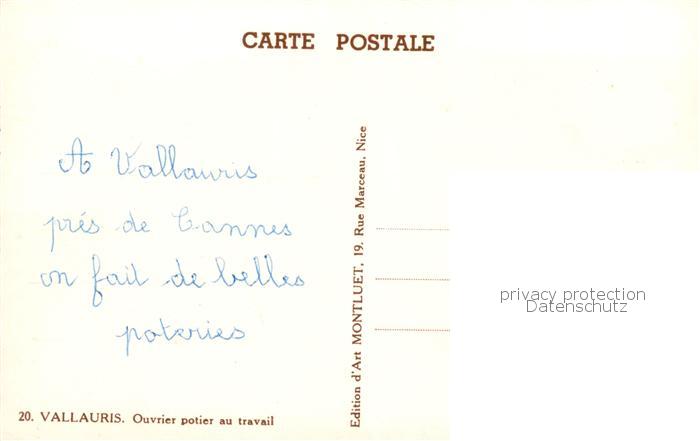 CARTE POSTALE
A Vallauris
prés de Cannes
on fait de belles
poteries
20. VALLAURIS. Ouvrier potier au travail
Edition d'Art MONTLUET, 19, Rue Marceau, Nice
privacy protection
Datenschutz